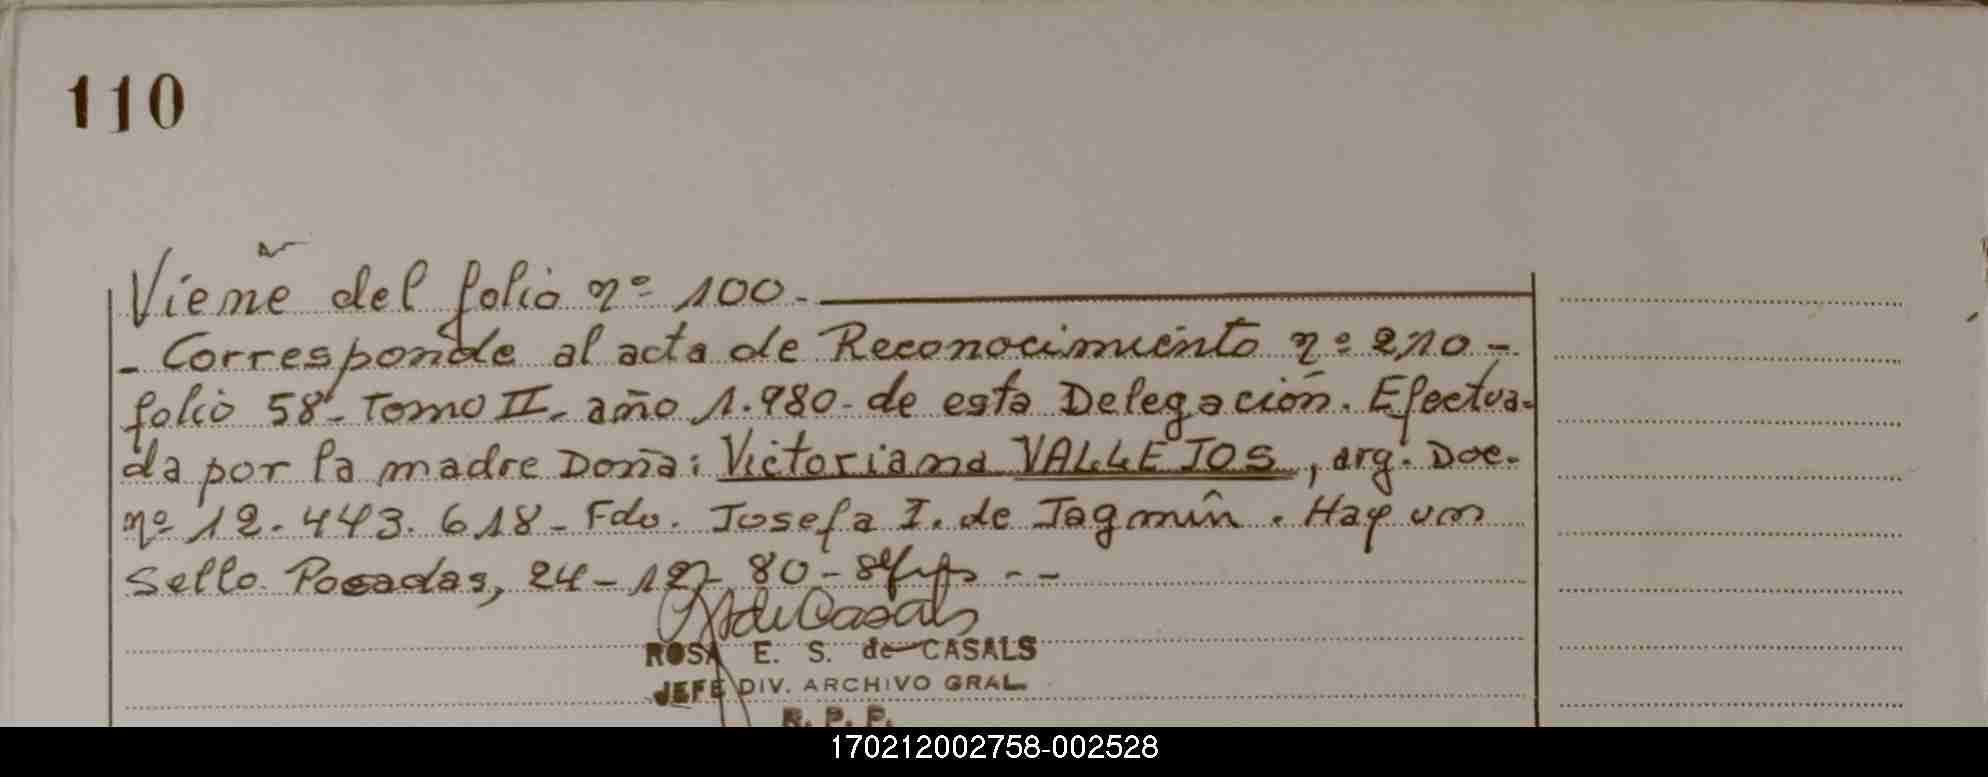 110
Viene del folio nº 100.-
- Corresponde al acta de Reconocimiento nº 210 -
folio 58 - Tomo II - año 1.980 - de esta Delegación. Efectua-
da por la madre Doña: Victoriana VALLEJOS, arg. Doc.
nº 12.443.618 - Fdo. Josefa I. de Jagmin. Hay un
Sello. Posadas, 24-12-80 -
ROSA E. S. de CASALS
JEFE DIV. ARCHIVO GRAL.
R. P. P.
170212002758-002528